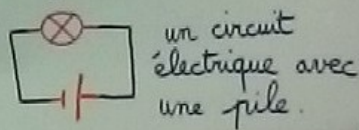 un circuit
électrique avec
une pile.